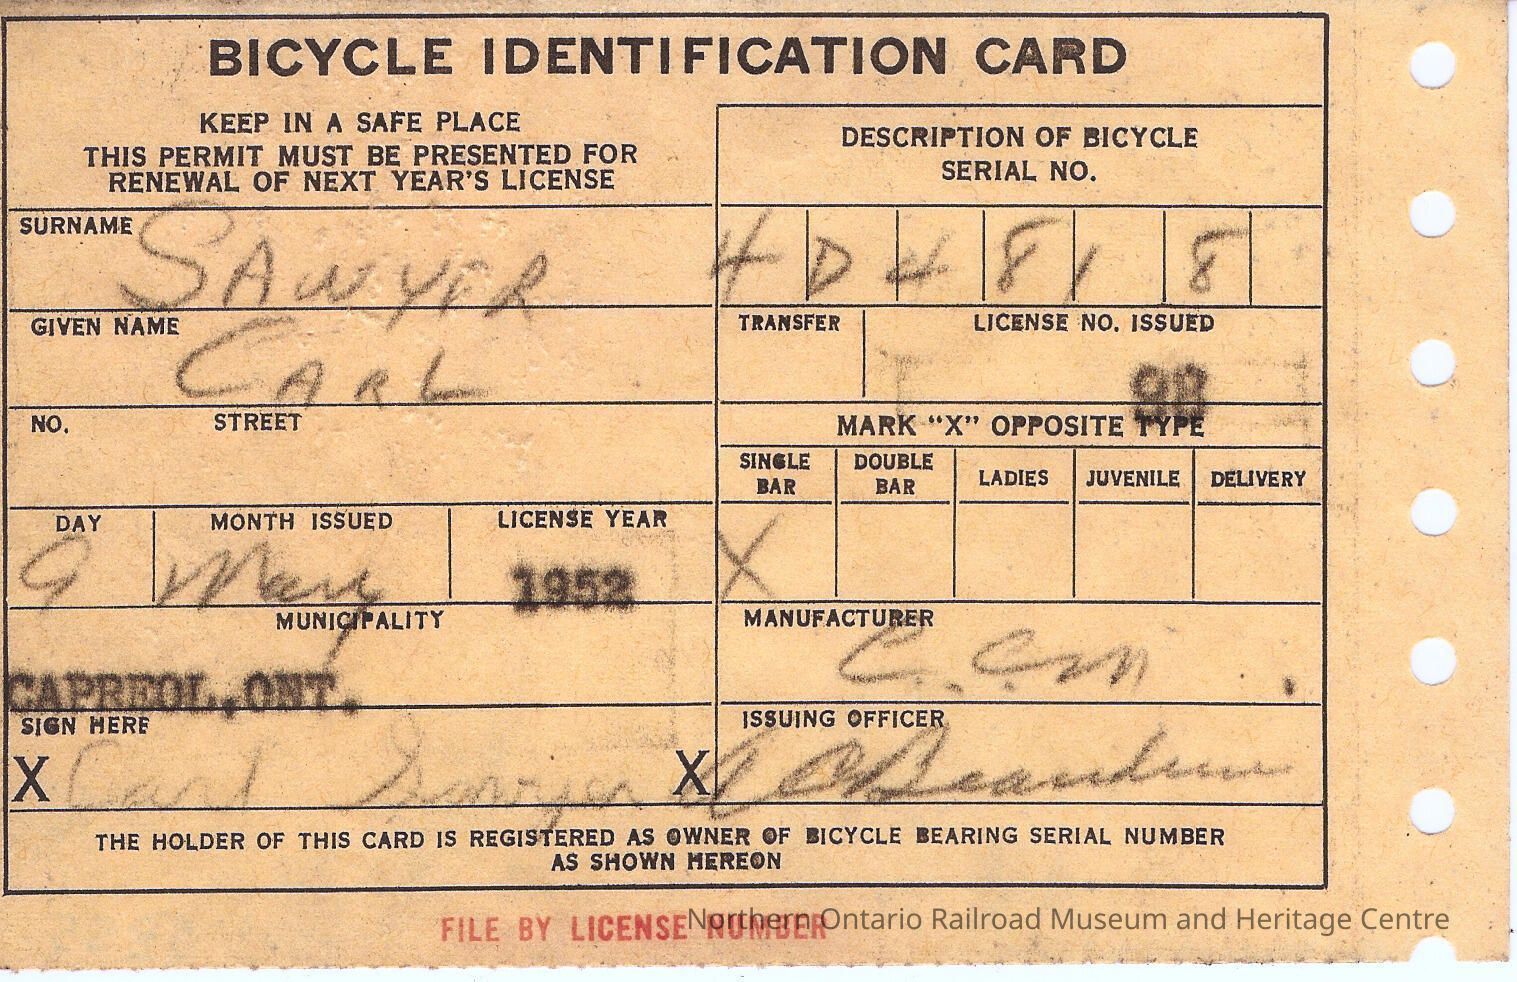 BICYCLE IDENTIFICATION CARD
KEEP IN A SAFE PLACE
THIS PERMIT MUST BE PRESENTED FOR
RENEWAL OF NEXT YEAR'S LICENSE
SURNAME
SAWYER
GIVEN NAME
CARL
NO. STREET
DAY MONTH ISSUED LICENSE YEAR
9 May 1952
MUNICIPALITY
CAPREOL, ONT.
SIGN HERE
X Carl Sawyer X
DESCRIPTION OF BICYCLE
SERIAL NO.
4 D 4 8 1 8
TRANSFER LICENSE NO. ISSUED
98
MARK "X" OPPOSITE TYPE
SINGLE BAR DOUBLE BAR LADIES JUVENILE DELIVERY
X
MANUFACTURER
C.C.M.
ISSUING OFFICER
THE HOLDER OF THIS CARD IS REGISTERED AS OWNER OF BICYCLE BEARING SERIAL NUMBER
AS SHOWN HEREON
FILE BY LICENSE NUMBER
Northern Ontario Railroad Museum and Heritage Centre